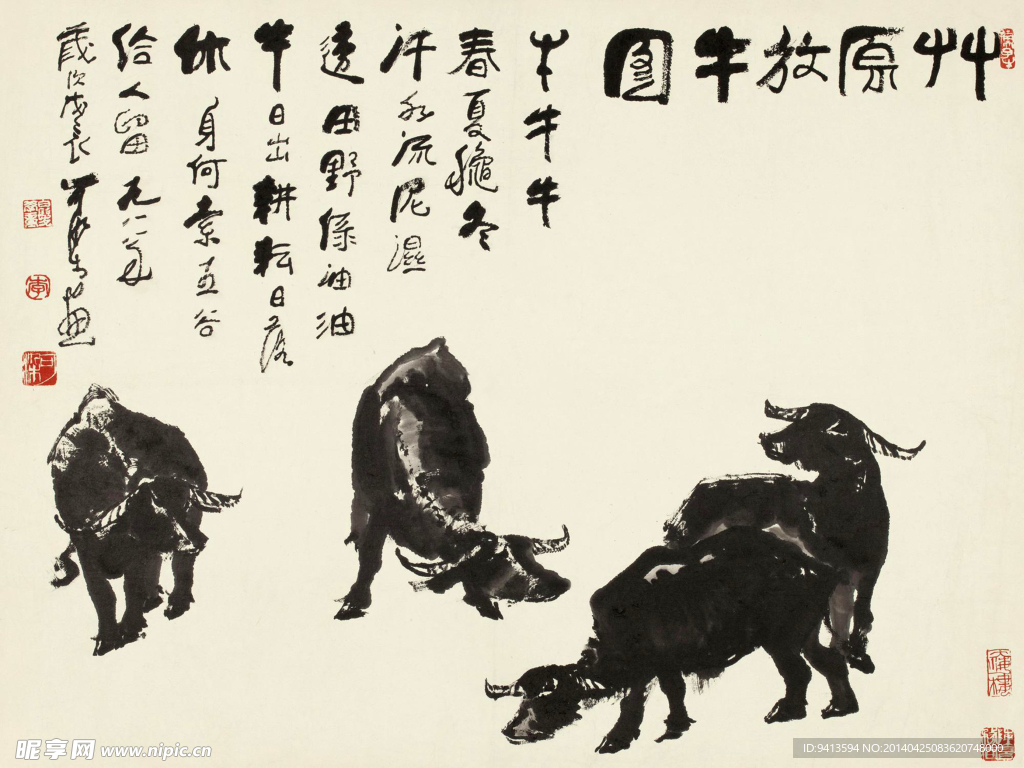 艸原放牛图
牛牛牛
春夏龝冬
汗水流泥濕
遶田野绿油油
牛日出耕耘日落
休身何索五谷
给人留
歲次戊辰
昵享网 www.nipic.cn
ID:9413594 NO:20140425083620748000